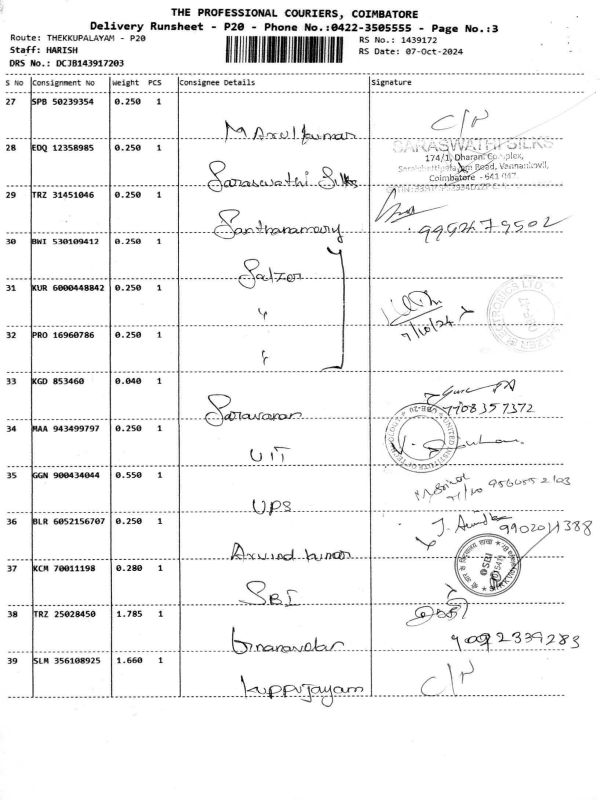 THE PROFESSIONAL COURIERS, COIMBATORE
Delivery Runsheet - P20 - Phone No.:0422-3505555 - Page No.:3
Route: THEKKUPALAYAM - P20
RS No.: 1439172
Staff: HARISH
RS Date: 07-Oct-2024
DRS No.: DCJB143917203
S No Consignment No Weight PCS Consignee Details Signature
27 SPB 50239354 0.250 1
M Arulkumar C/N
28 EDQ 12358985 0.250 1
SARASWATHI SILKS
174/1, Dharani Complex,
Road, Vannankovil,
Coimbatore - 641 047
Saraswathi Silks
29 TRZ 31451046 0.250 1
Santhanamary
30 BWI 530109412 0.250 1
Salzer
31 KUR 6000448842 0.250 1
"
7/10/24
32 PRO 16960786 0.250 1
"
33 KGD 853460 0.040 1
Saravanan 7708357372
34 MAA 943499797 0.250 1
UIT
35 GGN 900434044 0.550 1
UPS
36 BLR 6052156707 0.250 1
Arvind kumar
37 KCM 70011198 0.280 1
SBI
SBI
38 TRZ 25028450 1.785 1
39 SLM 356108925 1.660 1
Kuppujayam C/N